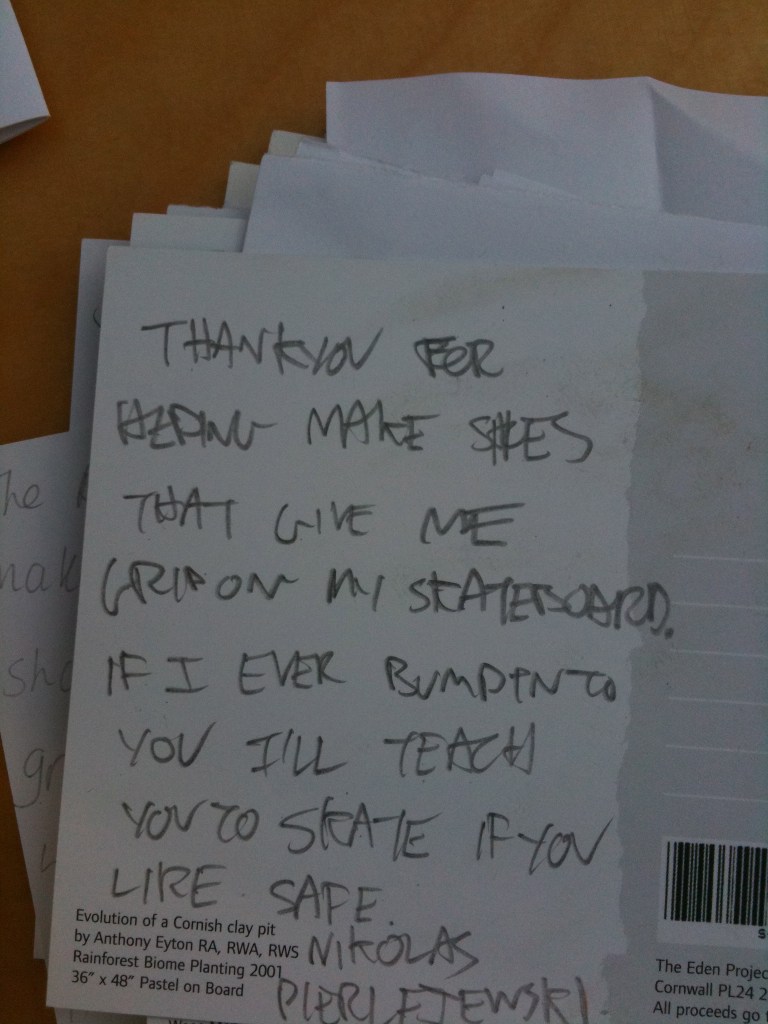 THANKYOU FOR
HELPING MAKE SHOES
THAT GIVE ME
GRIP ON MY SKATEBOARD.
IF I EVER BUMP INTO
YOU I'LL TEACH
YOU TO SKATE IF YOU
LIKE SAFE.
NIKOLAS
PIERLEJEWSKI.
Evolution of a Cornish clay pit
by Anthony Eyton RA, RWA, RWS
Rainforest Biome Planting 2001
36" x 48" Pastel on Board
The Eden Projec
Cornwall PL24 2
All proceeds go
he
mak
sho
gr